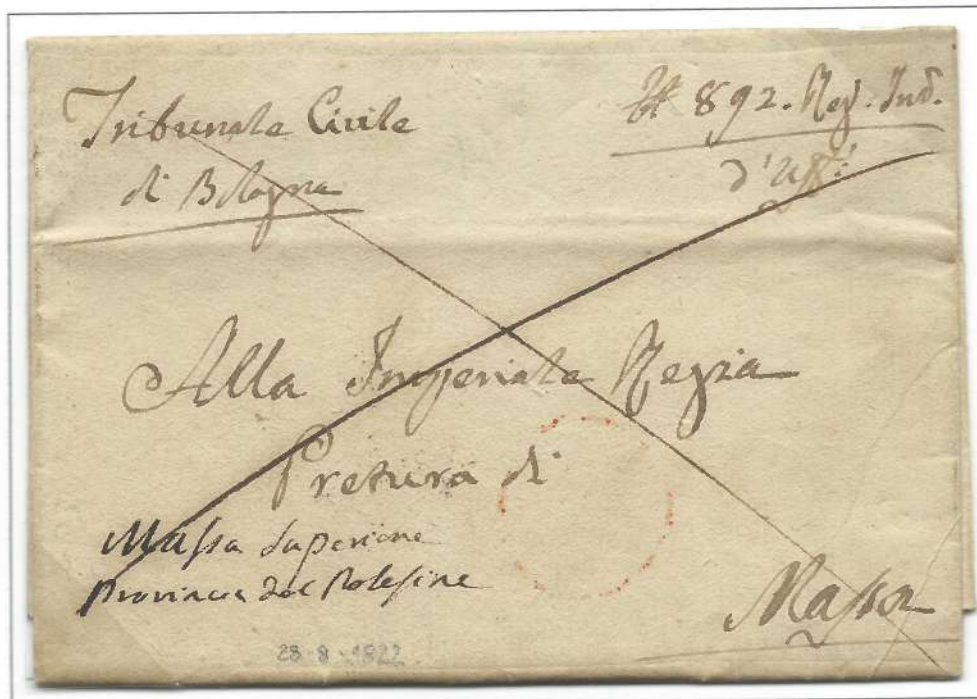 Tribunale Civile
di Bologna
N 892. Reg. Ind.
d'Uff:
Alla Imperiale Regia
Pretura di
Massa Superiore
Provincia del Polesine
Massa
28-8-1822